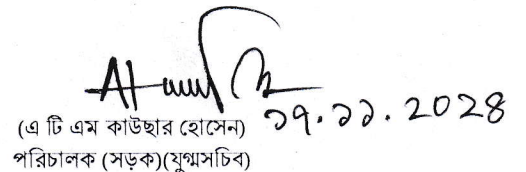 ১৭.১১.২০২৪
(এ টি এম কাউছার হোসেন)
পরিচালক (সড়ক)(যুগ্মসচিব)